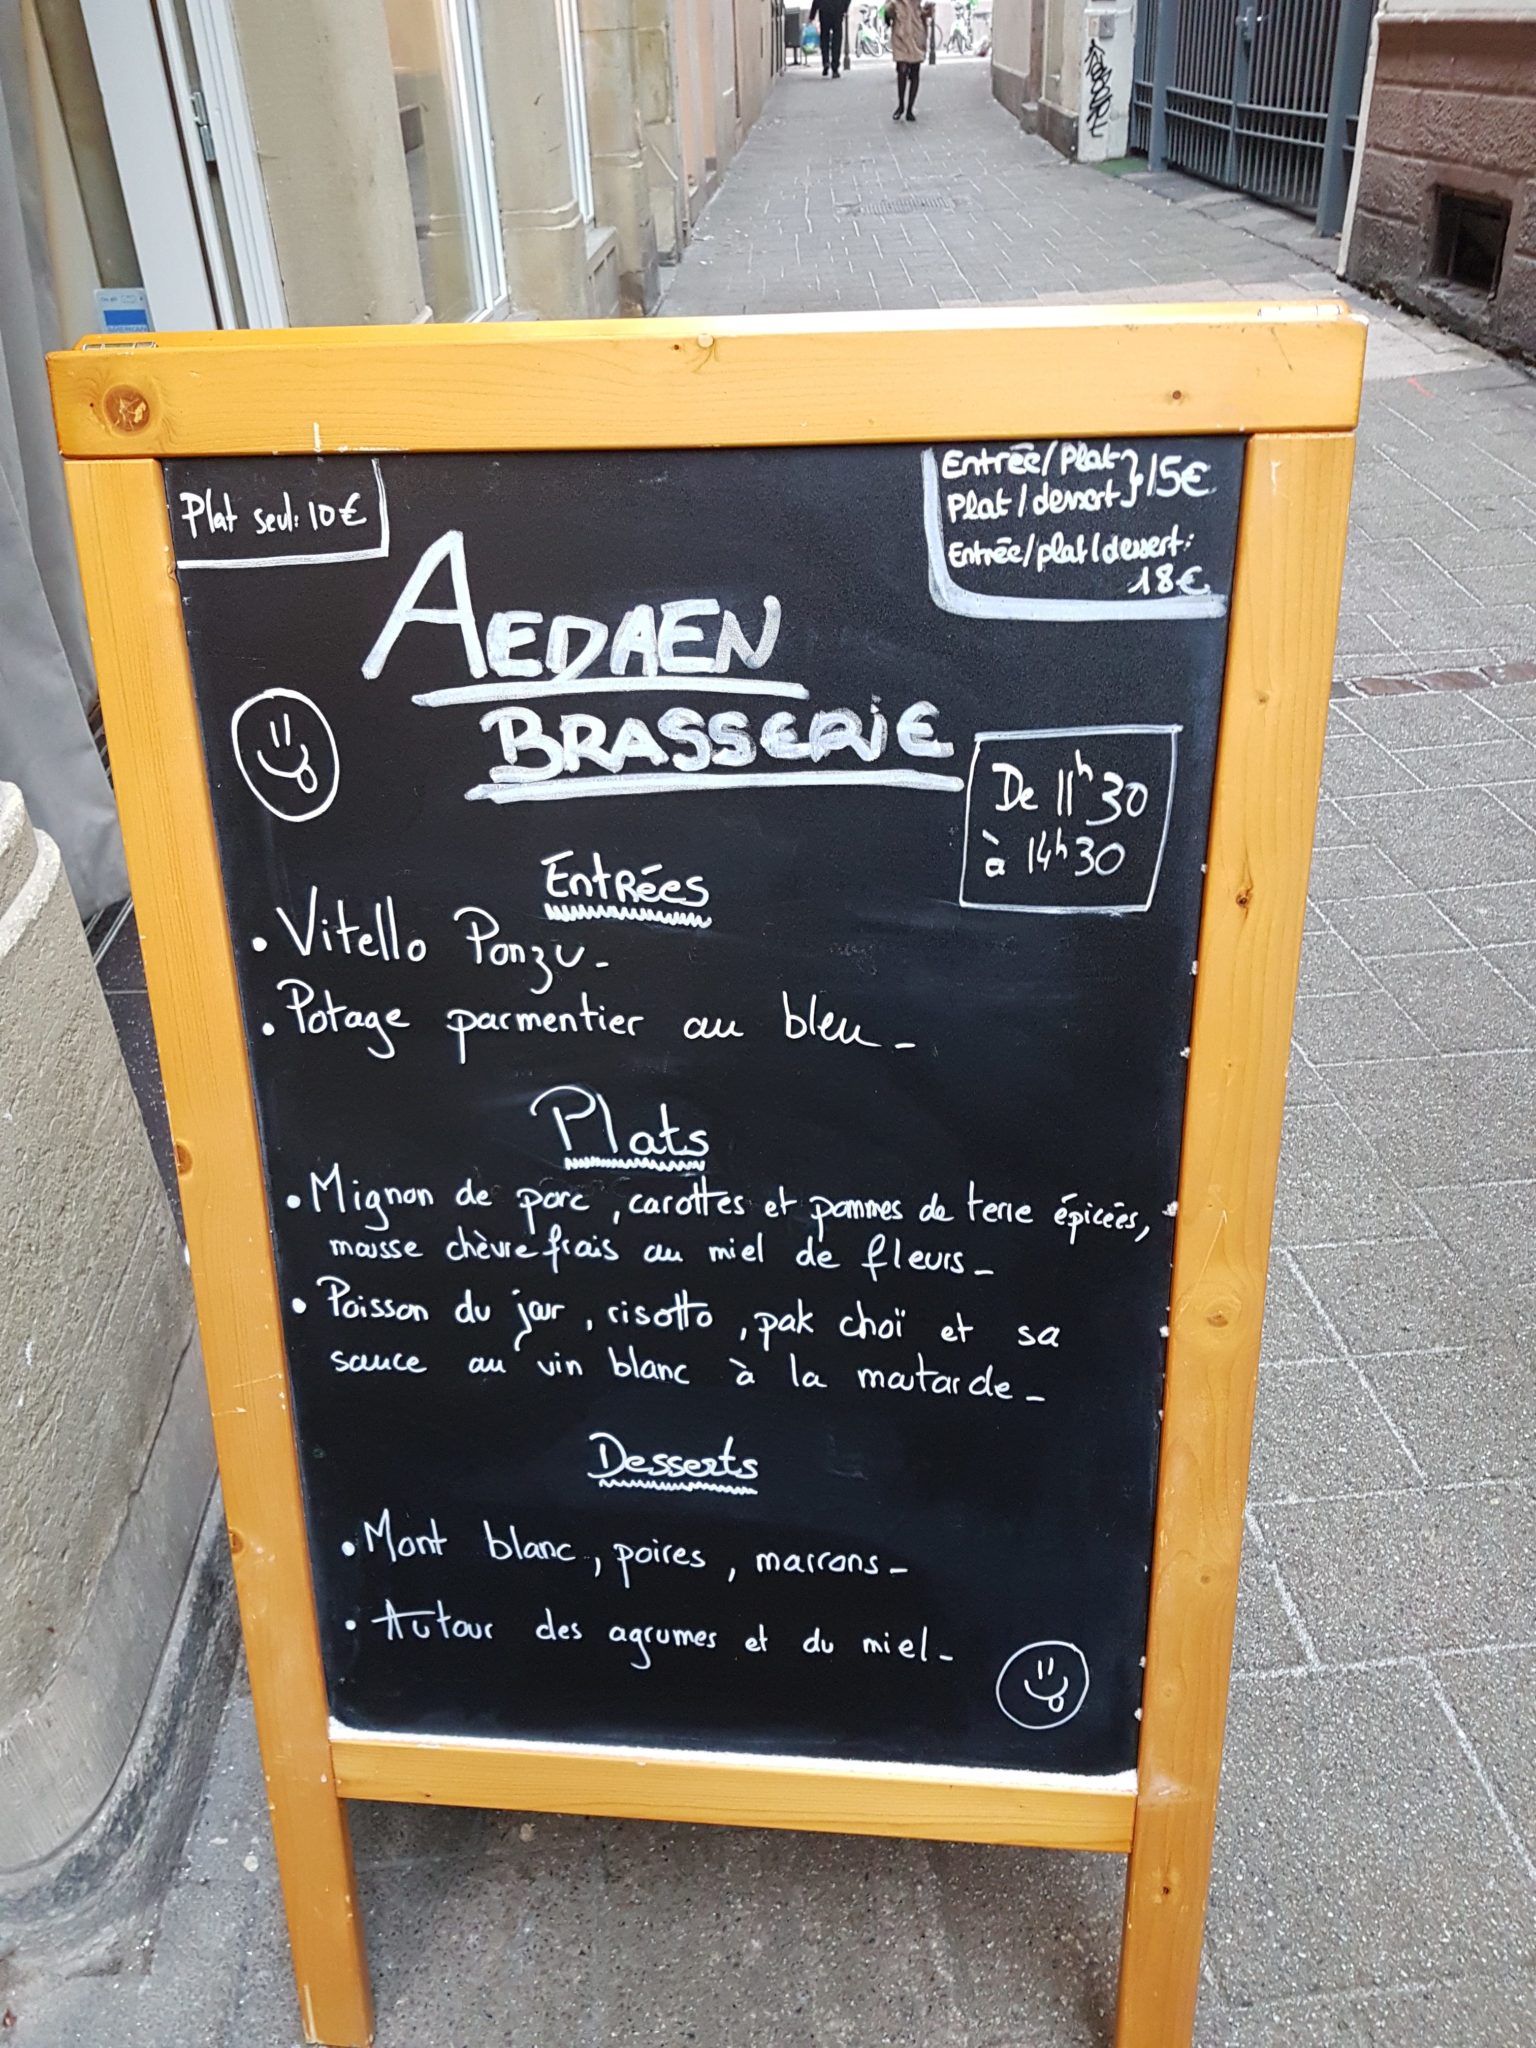 Plat seul: 10€
Entrée/Plat } 15€
Plat/dessert
Entrée/plat/dessert:
18€
AEDAEN
BRASSERIE
De 11h30
à 14h30
Entrées
• Vitello Ponzu-
• Potage parmentier au bleu-
Plats
• Mignon de porc, carottes et pommes de terre épicées,
mousse chèvre frais au miel de fleurs-
• Poisson du jour, risotto, pak choï et sa
sauce au vin blanc à la moutarde-
Desserts
• Mont blanc, poires, marrons-
• Autour des agrumes et du miel-